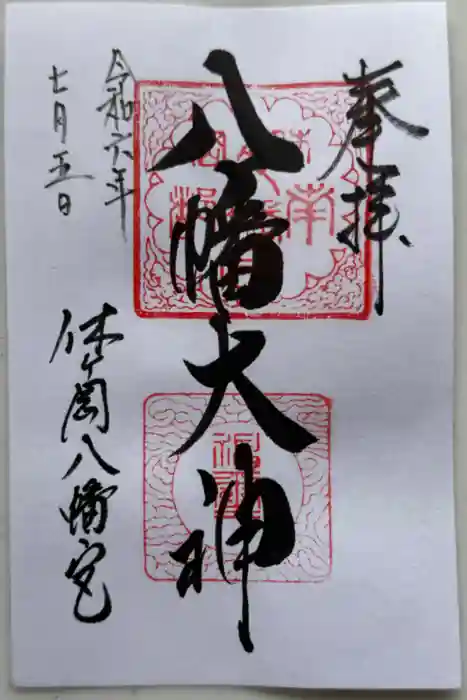 奉拝
八幡大神
令和六年
七月五日
休ヶ岡八幡宮